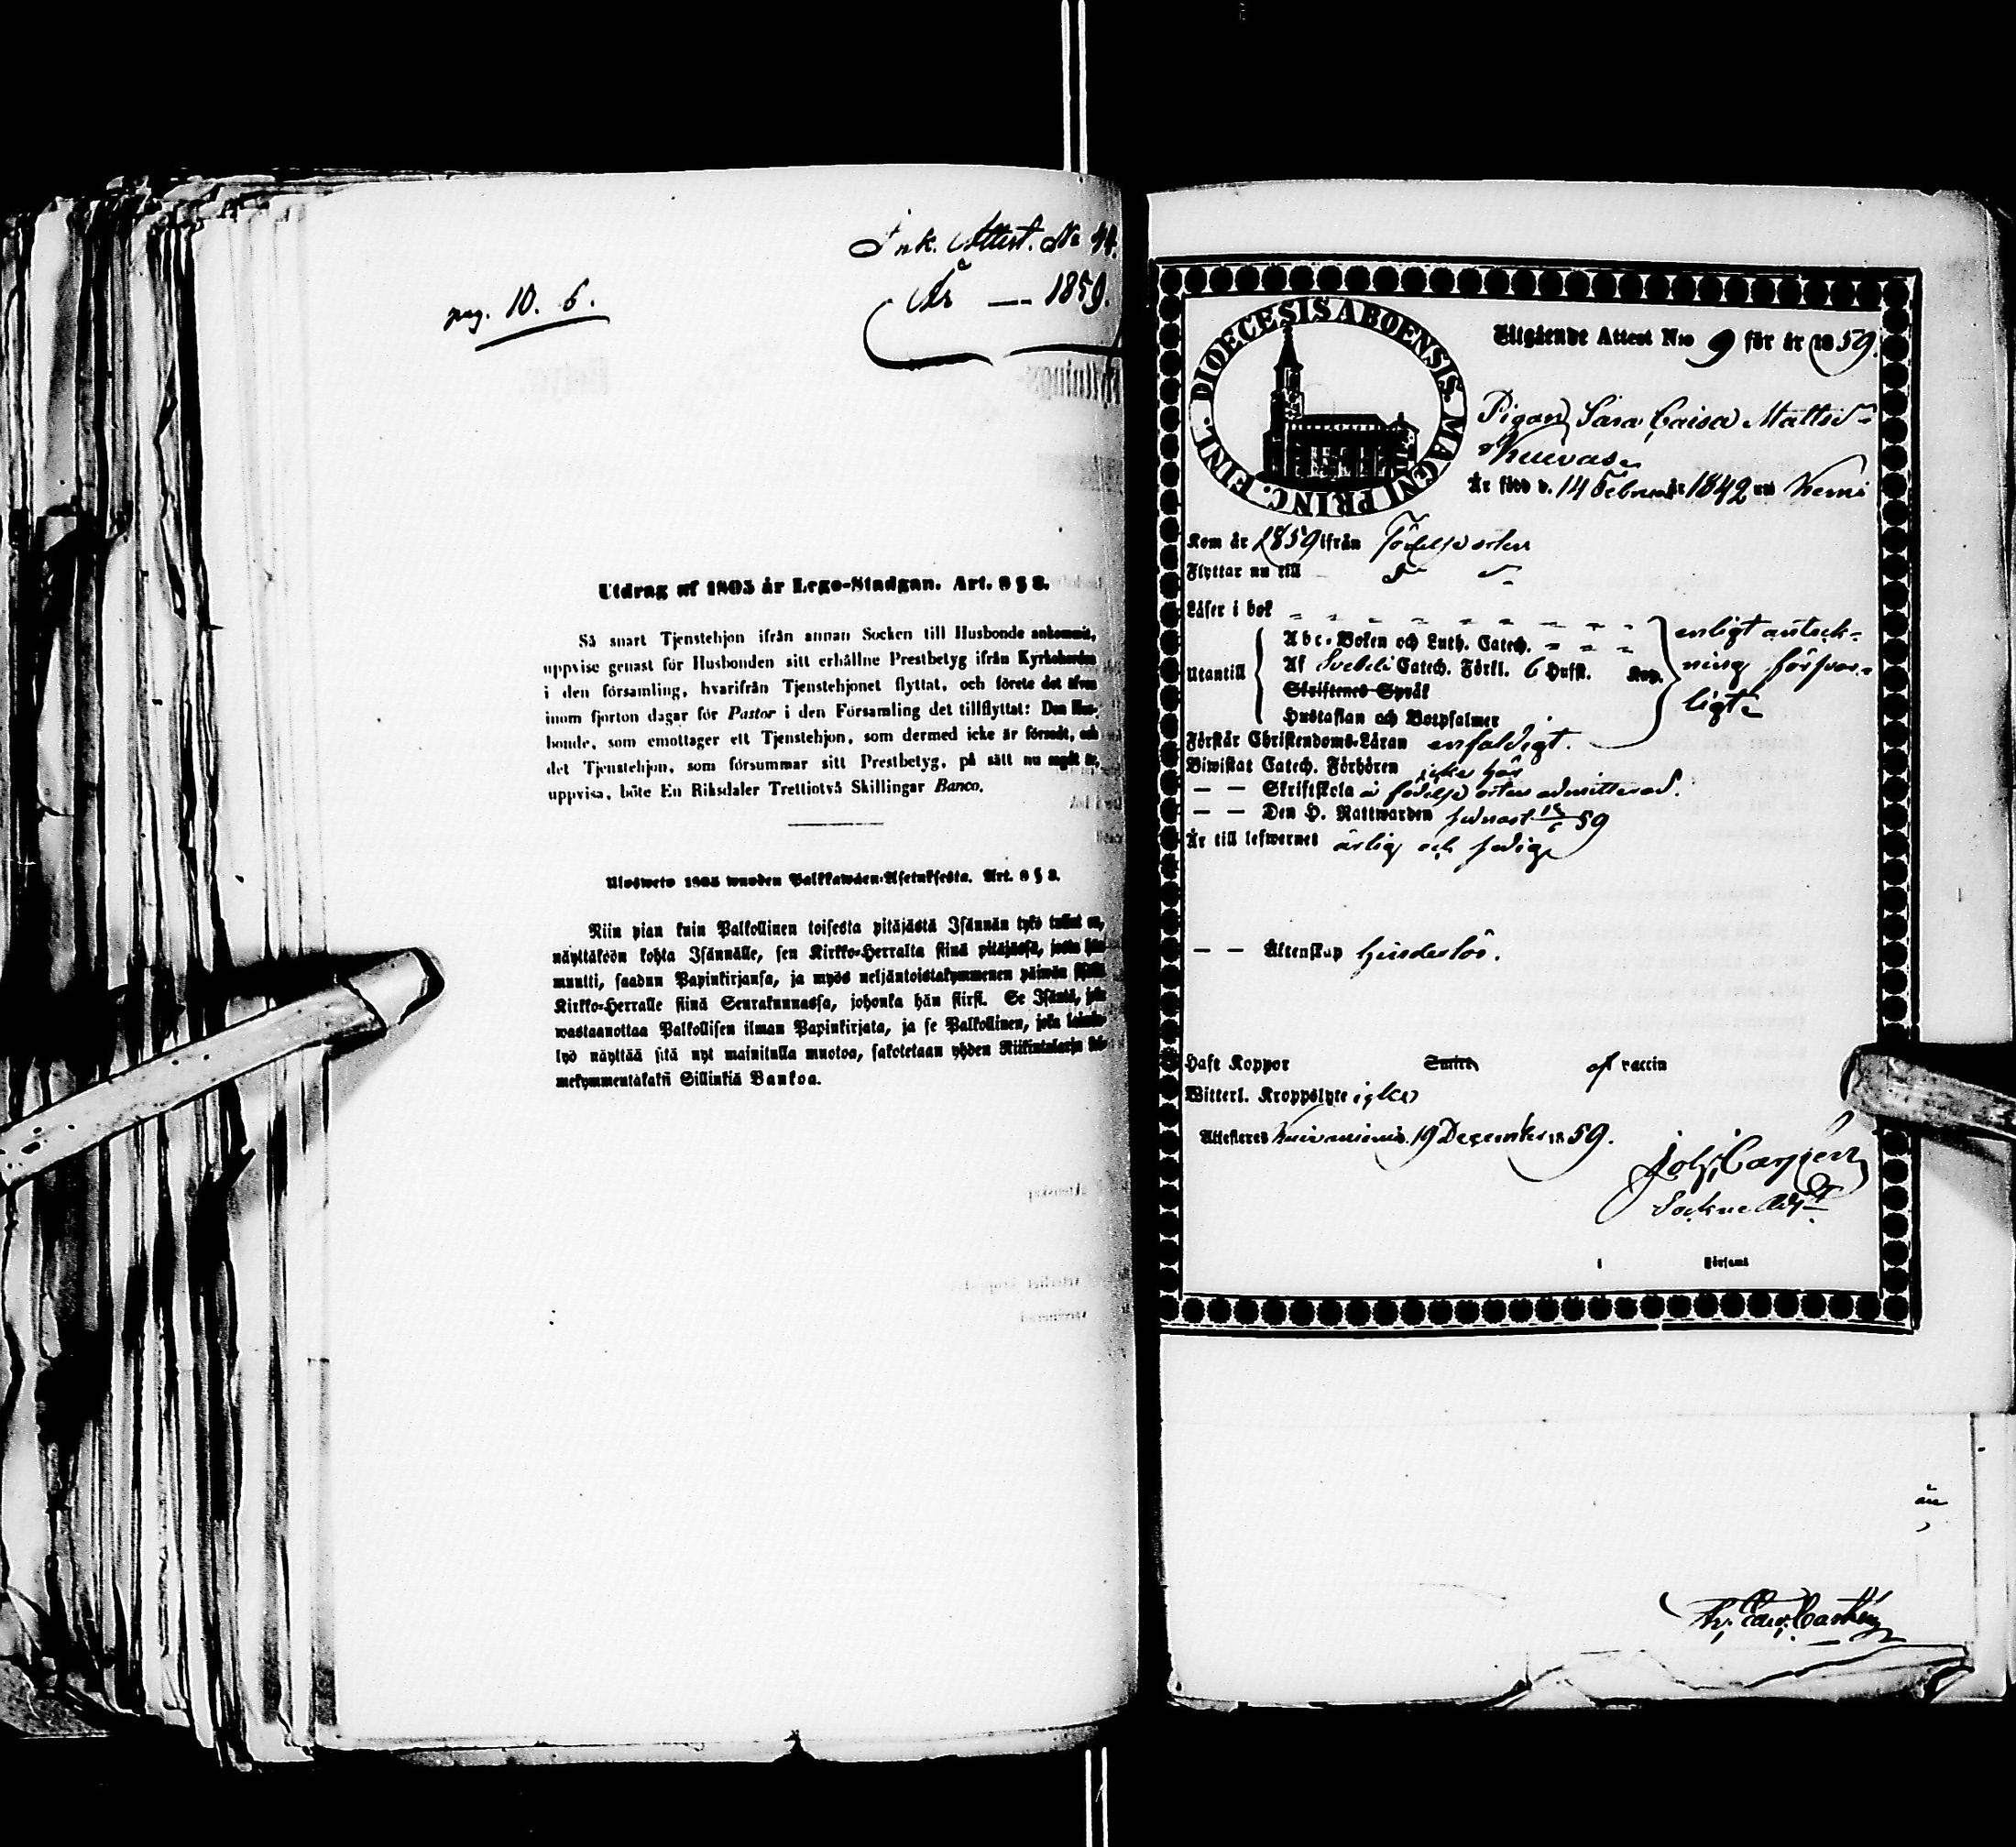 Ink. Attest. No 44.
År — 1859.
pag. 10. 6.
Utdrag af 1805 år Lego-Stadgan. Art. 8 § 8.
Så snart Tjenstehjon ifrån annan Socken till Husbonde ankommit,
uppvise genast för Husbonden sitt erhållne Prestbetyg ifrån Kyrkoherden
i den församling, hvarifrån Tjenstehjonet flyttat, och förete det äfven
inom fjorton dagar för Pastor i den Församling det tillflyttat: Den Hus-
bonde, som emottager ett Tjenstehjon, som dermed icke är försedt, och
det Tjenstehjon, som försummar sitt Prestbetyg, på sätt nu sagdt är,
uppvisa, böte En Riksdaler Trettiotvå Skillingar Banco.
Ulosweto 1805 wuoden Palkkawäen-Asetuksesta. Art. 8 § 8.
Niin pian kuin Palkollinen toisesta pitäjästä Isännän tykö tullut on,
näyttäköön kohta Isännälle, sen Kirkko-Herralta siinä pitäjäsä, josta hän
muutti, saadun Papinkirjansa, ja myös neljäntoistakymmenen päiwän sisällä
Kirkko-Herralle siinä Seurakunnassa, johonka hän siirsi. Se Isäntä, joka
wastaanottaa Palkollisen ilman Papinkirjata, ja se Palkollinen, joka laimin-
lyö näyttää sitä nyt mainitulla muotoa, sakotetaan yhden Riikintalarin kol-
mekymmentäkaksi Sillinkiä Bankoa.
DIOECESIS ABOENSIS. MAGNI PRINC. FINL.
Utgående Attest N:o 9 för år 1859.
Pigan Sara Caisa Mattsd:r
Är född d. 14 Februari år 1842 uti Kemi
Kom år 1859 ifrån Födelseorten
Flyttar nu till
Läser i bok
Utantill
Abc-Boken och Luth. Catech.
Af Svebeli Catech. Förkl. 6 Hufst. Kap.
Skriftenes Språk
Hustaflan och Botpsalmer
enligt anteck-
ning försvar-
ligt
Förstår Christendoms-Läran enfaldigt.
Biwistat Catech. Förhören icke här
— — Skriftskola i födelse orten admitterad.
— — Den H. Nattwarden sednast 59
Är till lefwernet ärlig och sedig
— — Äktenskap hinderslös.
Haft Koppor af vaccin
Witterl. Kroppslyte icke
Attesteras 19 December 1859.
i Församl
än